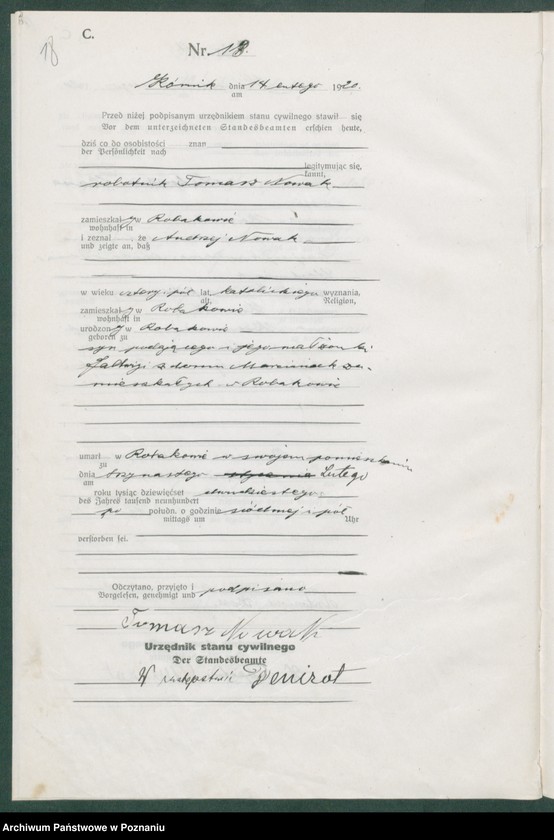 C.
18
Nr. 18.
Kórnik dnia 14 lutego 1920.
am
Przed niżej podpisanym urzędnikiem stanu cywilnego stawił się
Vor dem unterzeichneten Standesbeamten erschien heute,
dziś co do osobistości znan
der Persönlichkeit nach
legitymując się,
kannt,
robotnik Tomasz Nowak
zamieszkały w Robakowie
wohnhaft in
i zeznał, że Andrzej Nowak
und zeigte an, daß
w wieku cztery i pół lat, katolickiego wyznania,
alt, Religion,
zamieszkały w Robakowie
wohnhaft in
urodzony w Robakowie
geboren zu
syn podającego i jego małżonki
Jadwigi z domu Marciniak za-
mieszkałych w Robakowie
umarł w Robakowie w swojem pomieszkaniu
zu
dnia trzynastego stycznia Lutego
am
roku tysiąc dziewięćset dwudziestego
des Jahres tausend neunhundert
po połudn. o godzinie siódmej i pół
mittags um Uhr
verstorben sei.
Odczytano, przyjęto i podpisano
Vorgelesen, genehmigt und
Tomasz Nowak
Urzędnik stanu cywilnego
Der Standesbeamte
W zastępstwie
Archiwum Państwowe w Poznaniu